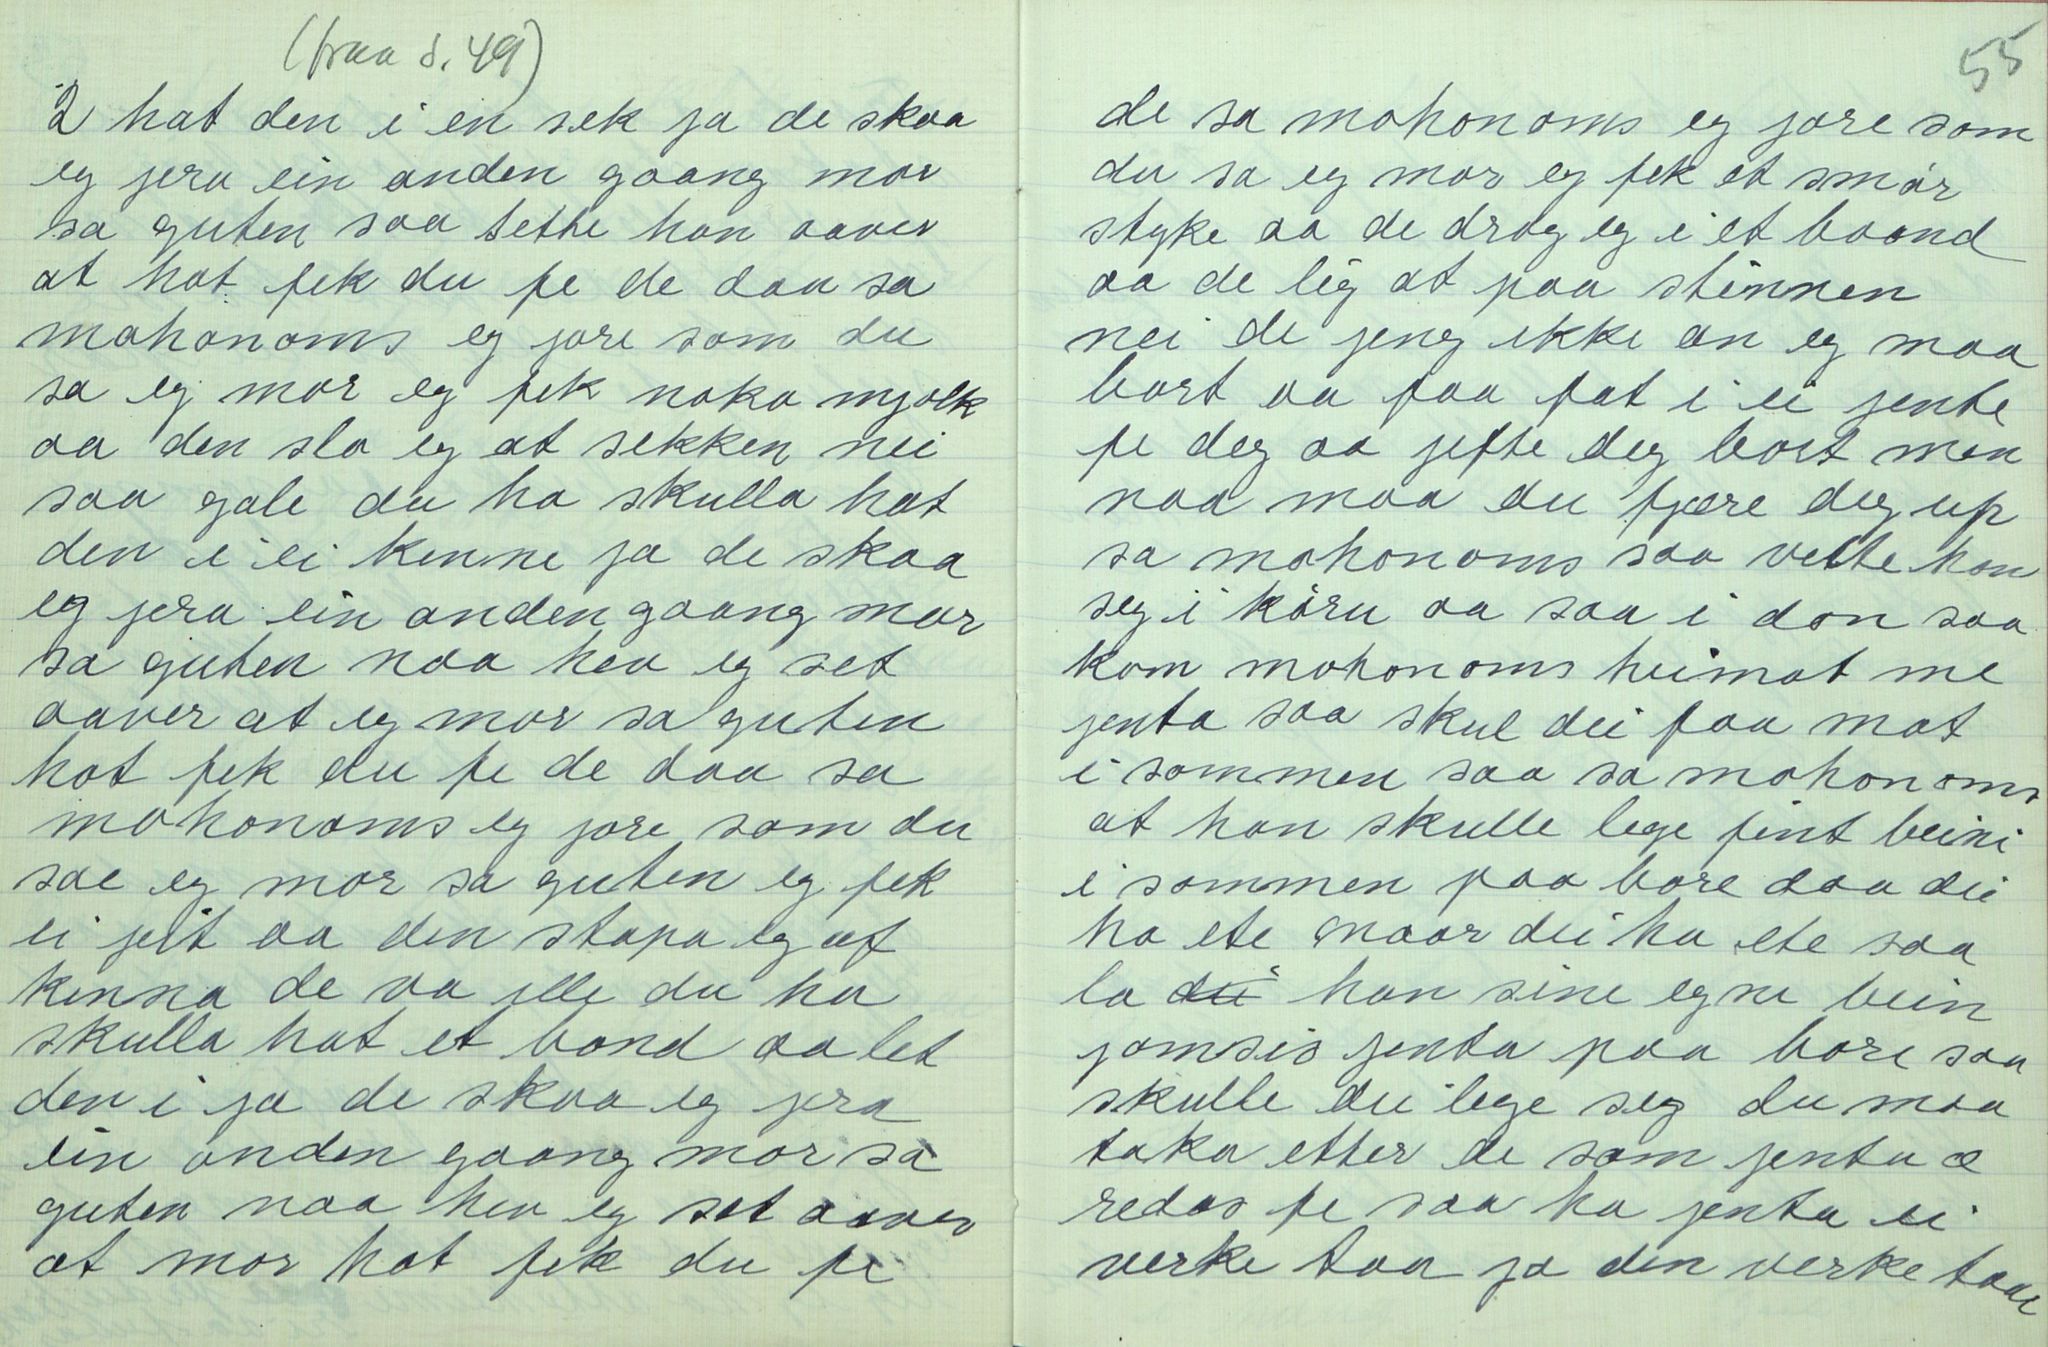 (fraa s. 49)
2 hat den i en sek ja de skaa
eg jera ein anden gaang mor
sa guten saa sette han aaver
at hot fek du fe de daa sa
mohonoms eg jore som du
sa eg mor eg fek noko mjølk
aa den slo eg at sekken nei
saa gale du ha skulla hat
den i ei kenne ja de skaa
eg jera ein anden gaang mor
sa guten naa hev eg set
aaver at eg mor sa guten
hot fek du fe de daa sa
mohonoms eg jore som du
sae eg mor sa guten eg fek
ei jeit aa den stapa eg uf
kenna de va ille du ha
skulla hat et bond aa let
den i ja de skaa eg jera
ein anden gaang mor sa
guten naa hev eg set aaver
at mor hot fek du fe
55
de sa mohonoms eg jore som
du sa eg mor eg fek et smør
styke aa de drog eg i et baand
aa de lig at paa stinnen
nei de jeng ikke an eg maa
bort aa faa fat i ei jente
fe deg aa jefte deg bort men
naa maa du fjære deg up
sa mohonoms saa velte han
seg i køru aa saa i don saa
kom mohonoms heimat me
jenta saa skul dei faa mat
i sommen saa sa mohonoms
at han skulle lege fint beini
i sommen paa bore daa dei
ha ete maar dei ha ete saa
la dei han sine egne bein
jomsis jenta paa bore saa
skulle dei lege seg du maa
taka etter de som jenta æ
redas fe saa ha jenta ei
verke taa ja den verke taae